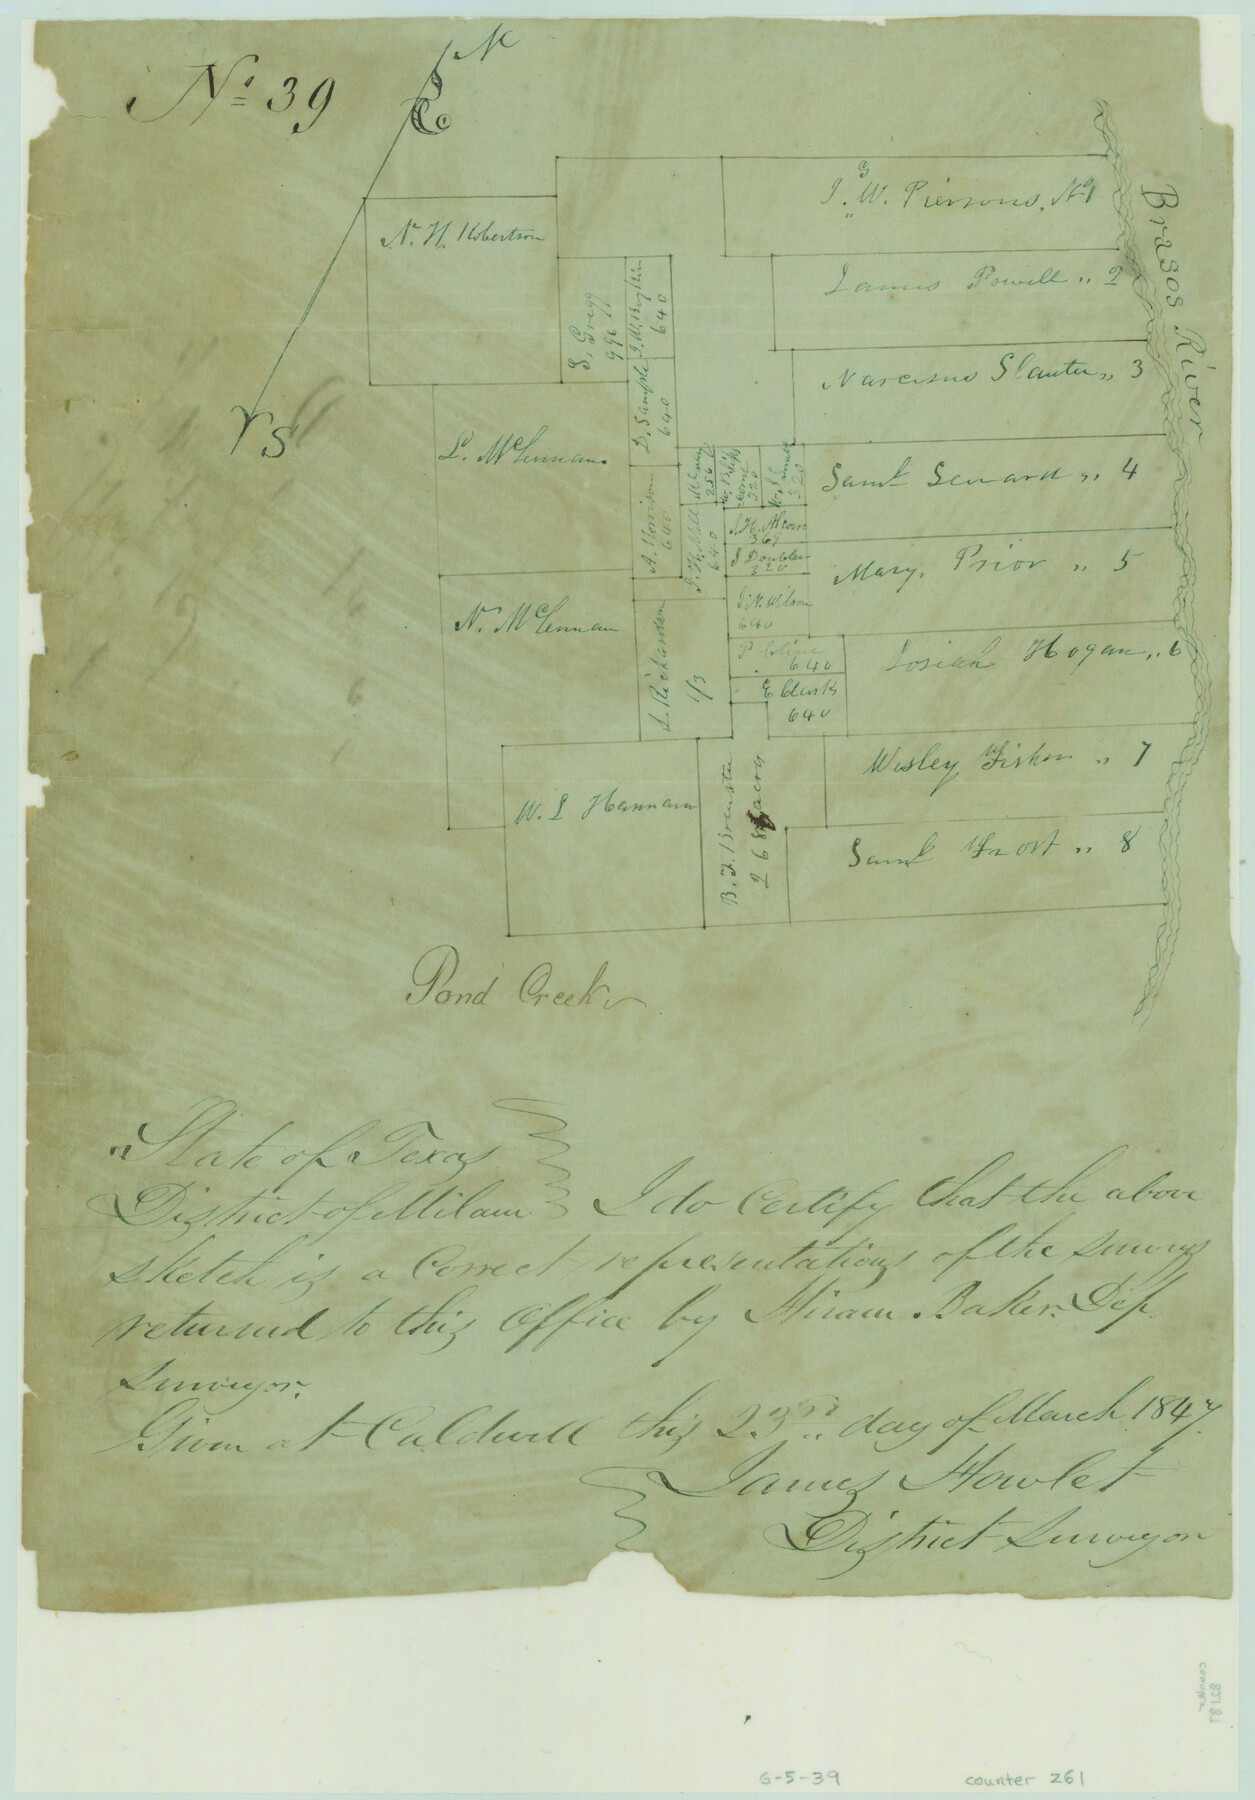 No 39
N
S
J. G. W. Piersons. No 1
James Powell " 2
Brasos River
N. H. Robertson
S. Gregg
640
Slauter " 3
D. Sample
640
L. McLennan
Saml Seward " 4
A. Morrison
640
256
320
320
369
J Doubler
320
640
Mary. Prior " 5
J. N. Wilson
640
N. McLennan
L. Richardson
1/3
640
E Clusk
640
Josiah Hogan " 6
Wesley Fisher " 7
W. L Hannam
B. F. Brewster
acrs
Saml Frost " 8
Pond Creek
State of Texas
District of Milam I do Certify that the above
sketch is a Correct representations of the surveys
returned to this Office by Hiram Baker. Dep
surveyor.
Given at Caldwell this 23rd day of March 1847.
James Howlet
District Surveyor
G-5-39
counter 261